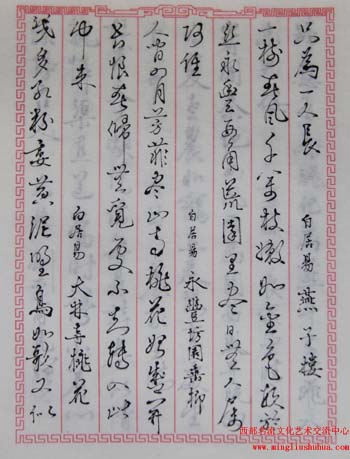 只為一人長 白居易 燕子樓
一樹春風千萬枝嫩如金色軟於
絲永豐西角荒園里盡日無人屬
阿誰 白居易 永豐坊園垂柳
人間四月芳菲盡山寺桃花始盛開
長恨春歸無覓處不知轉入此
中來 白居易 大林寺桃花
幾多紅粉委黃泥野鳥如歌又似
西部名流文化艺术交流中心
www.mingliushuhua.com